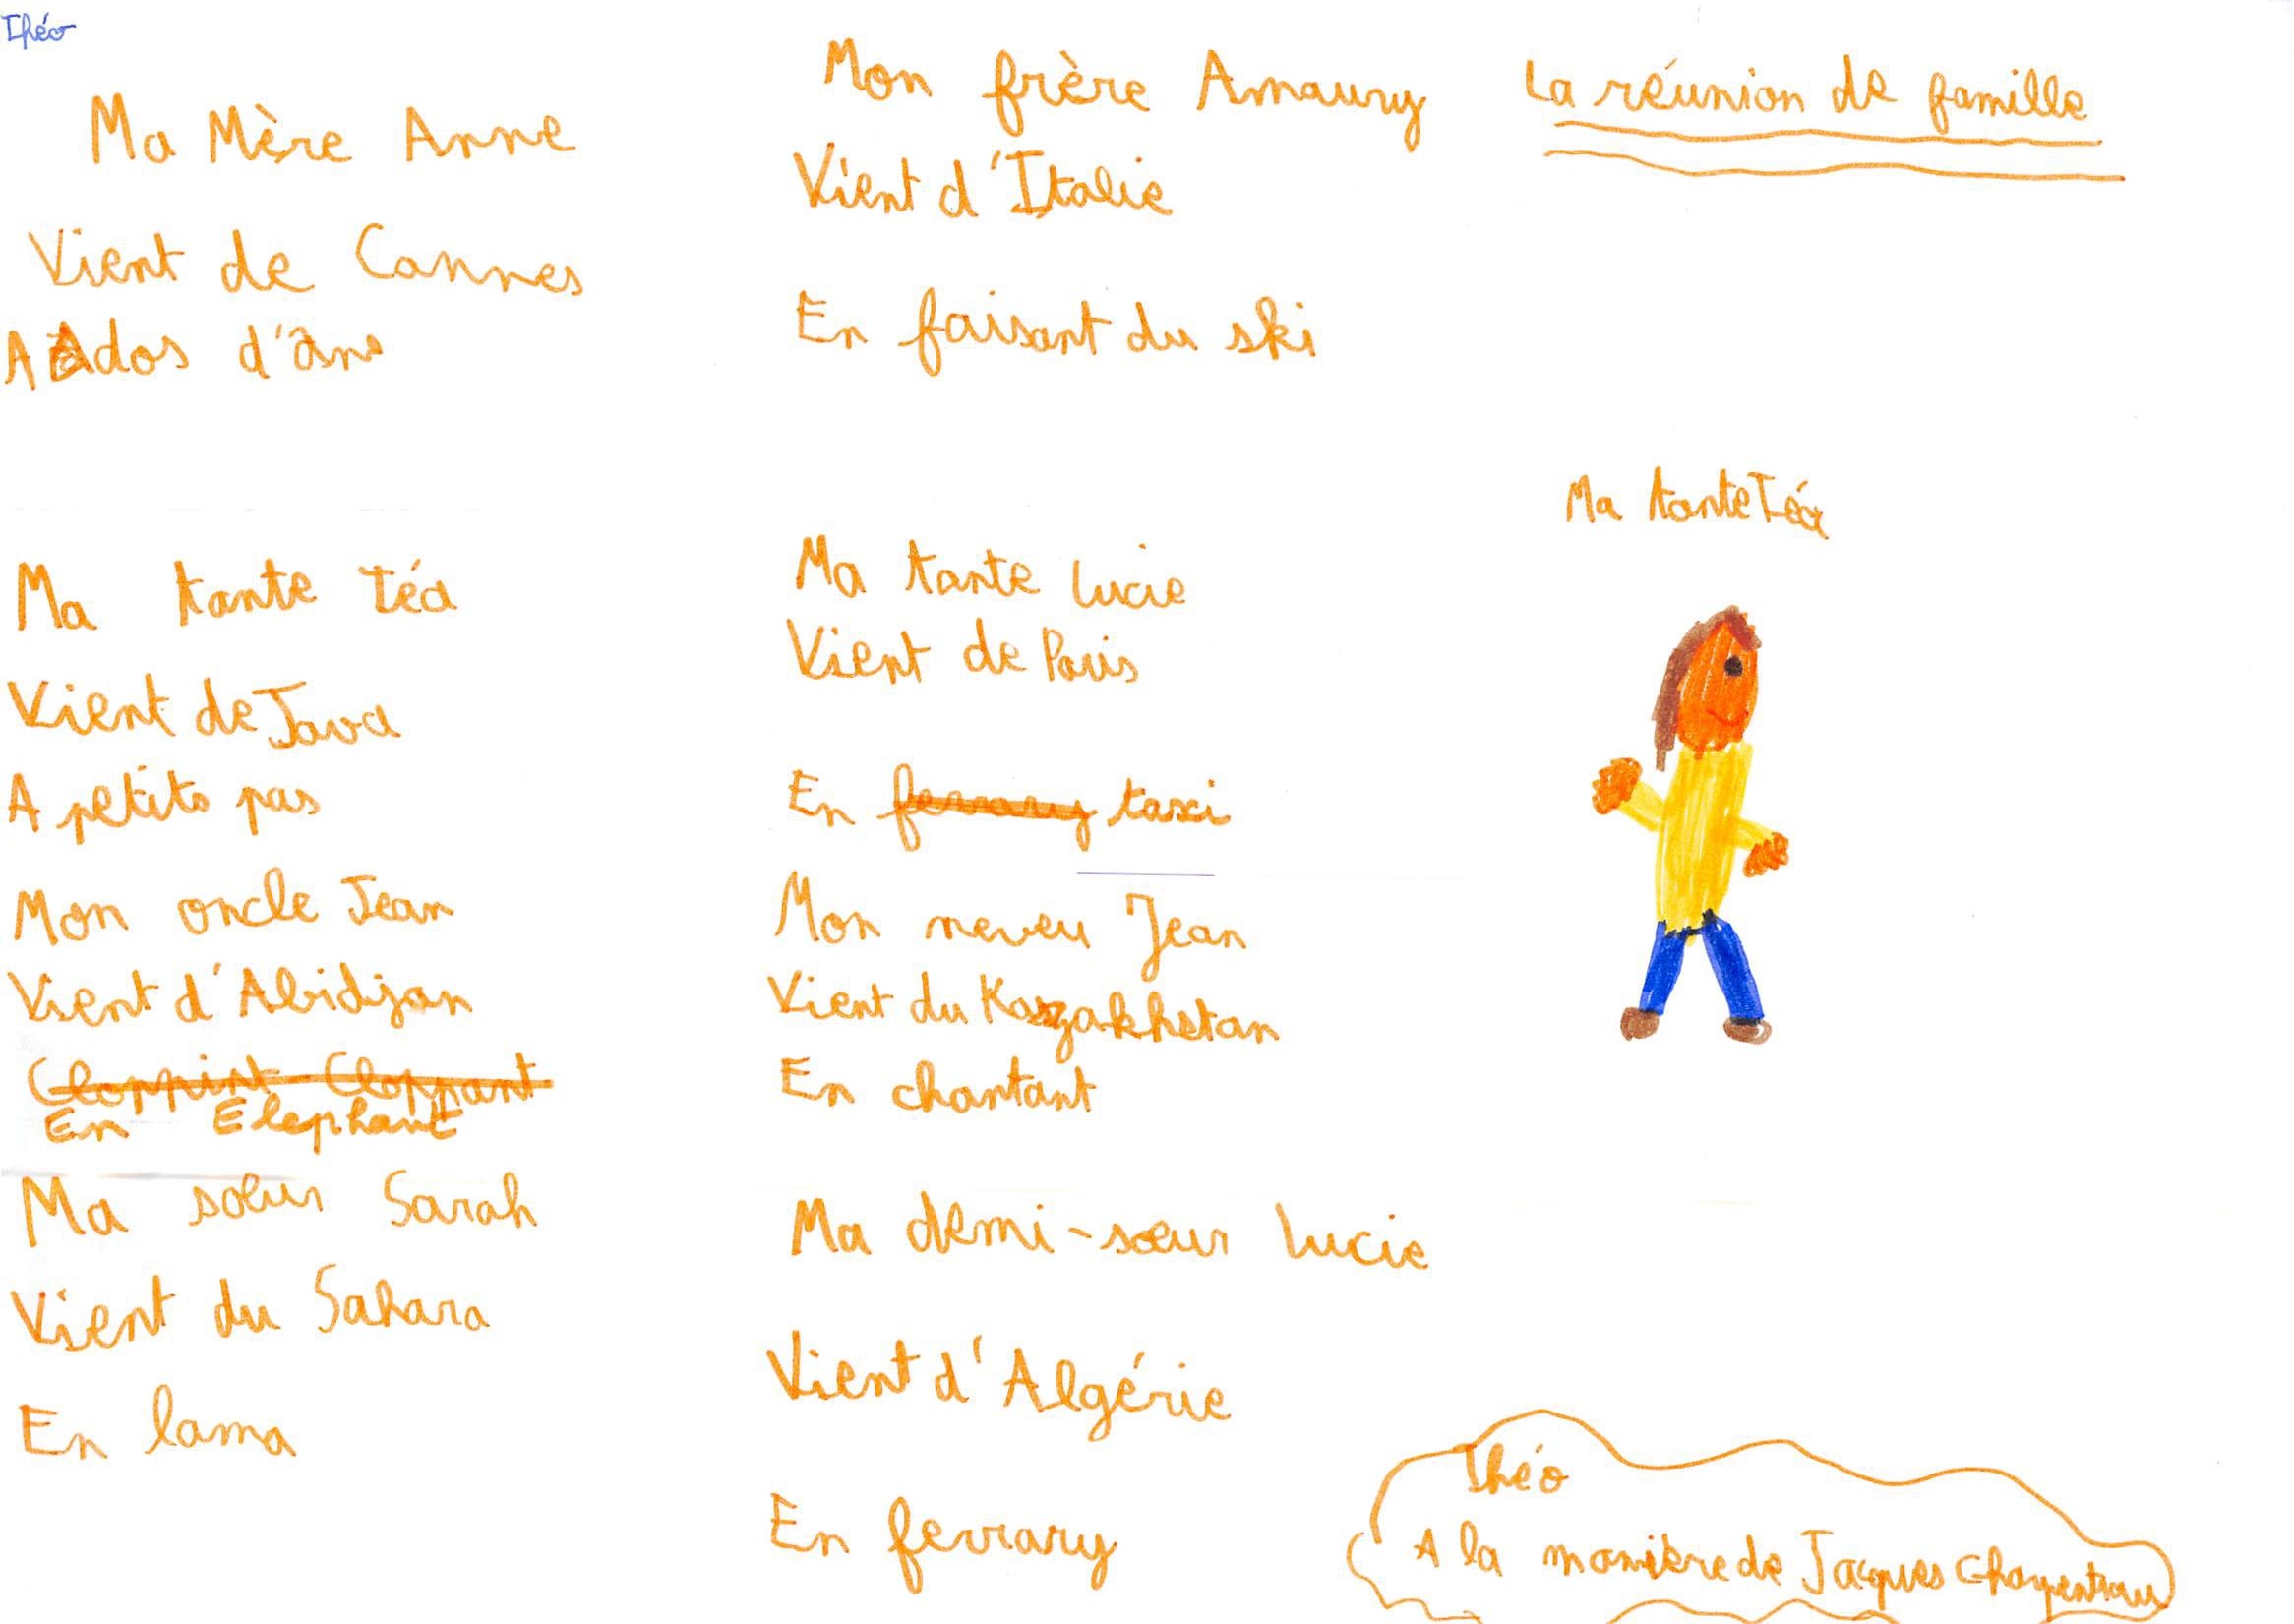 Théo
La réunion de famille
Ma Mère Anne
Vient de Cannes
A dos d'âne
Ma tante Téa
Vient de Java
A petits pas
Mon oncle Jean
Vient d'Abidjan
Cloppint Cloppant
En Elephant
Ma soeur Sarah
Vient du Sahara
En lama
Mon frère Amaury
Vient d'Italie
En faisant du ski
Ma tante Lucie
Vient de Paris
En ferrary taxi
Mon neveu Jean
Vient du Kazakhstan
En chantant
Ma demi-sœur Lucie
Vient d'Algérie
En ferrary
Ma tante Téa
Théo
A la manière de Jacques Charpentreau